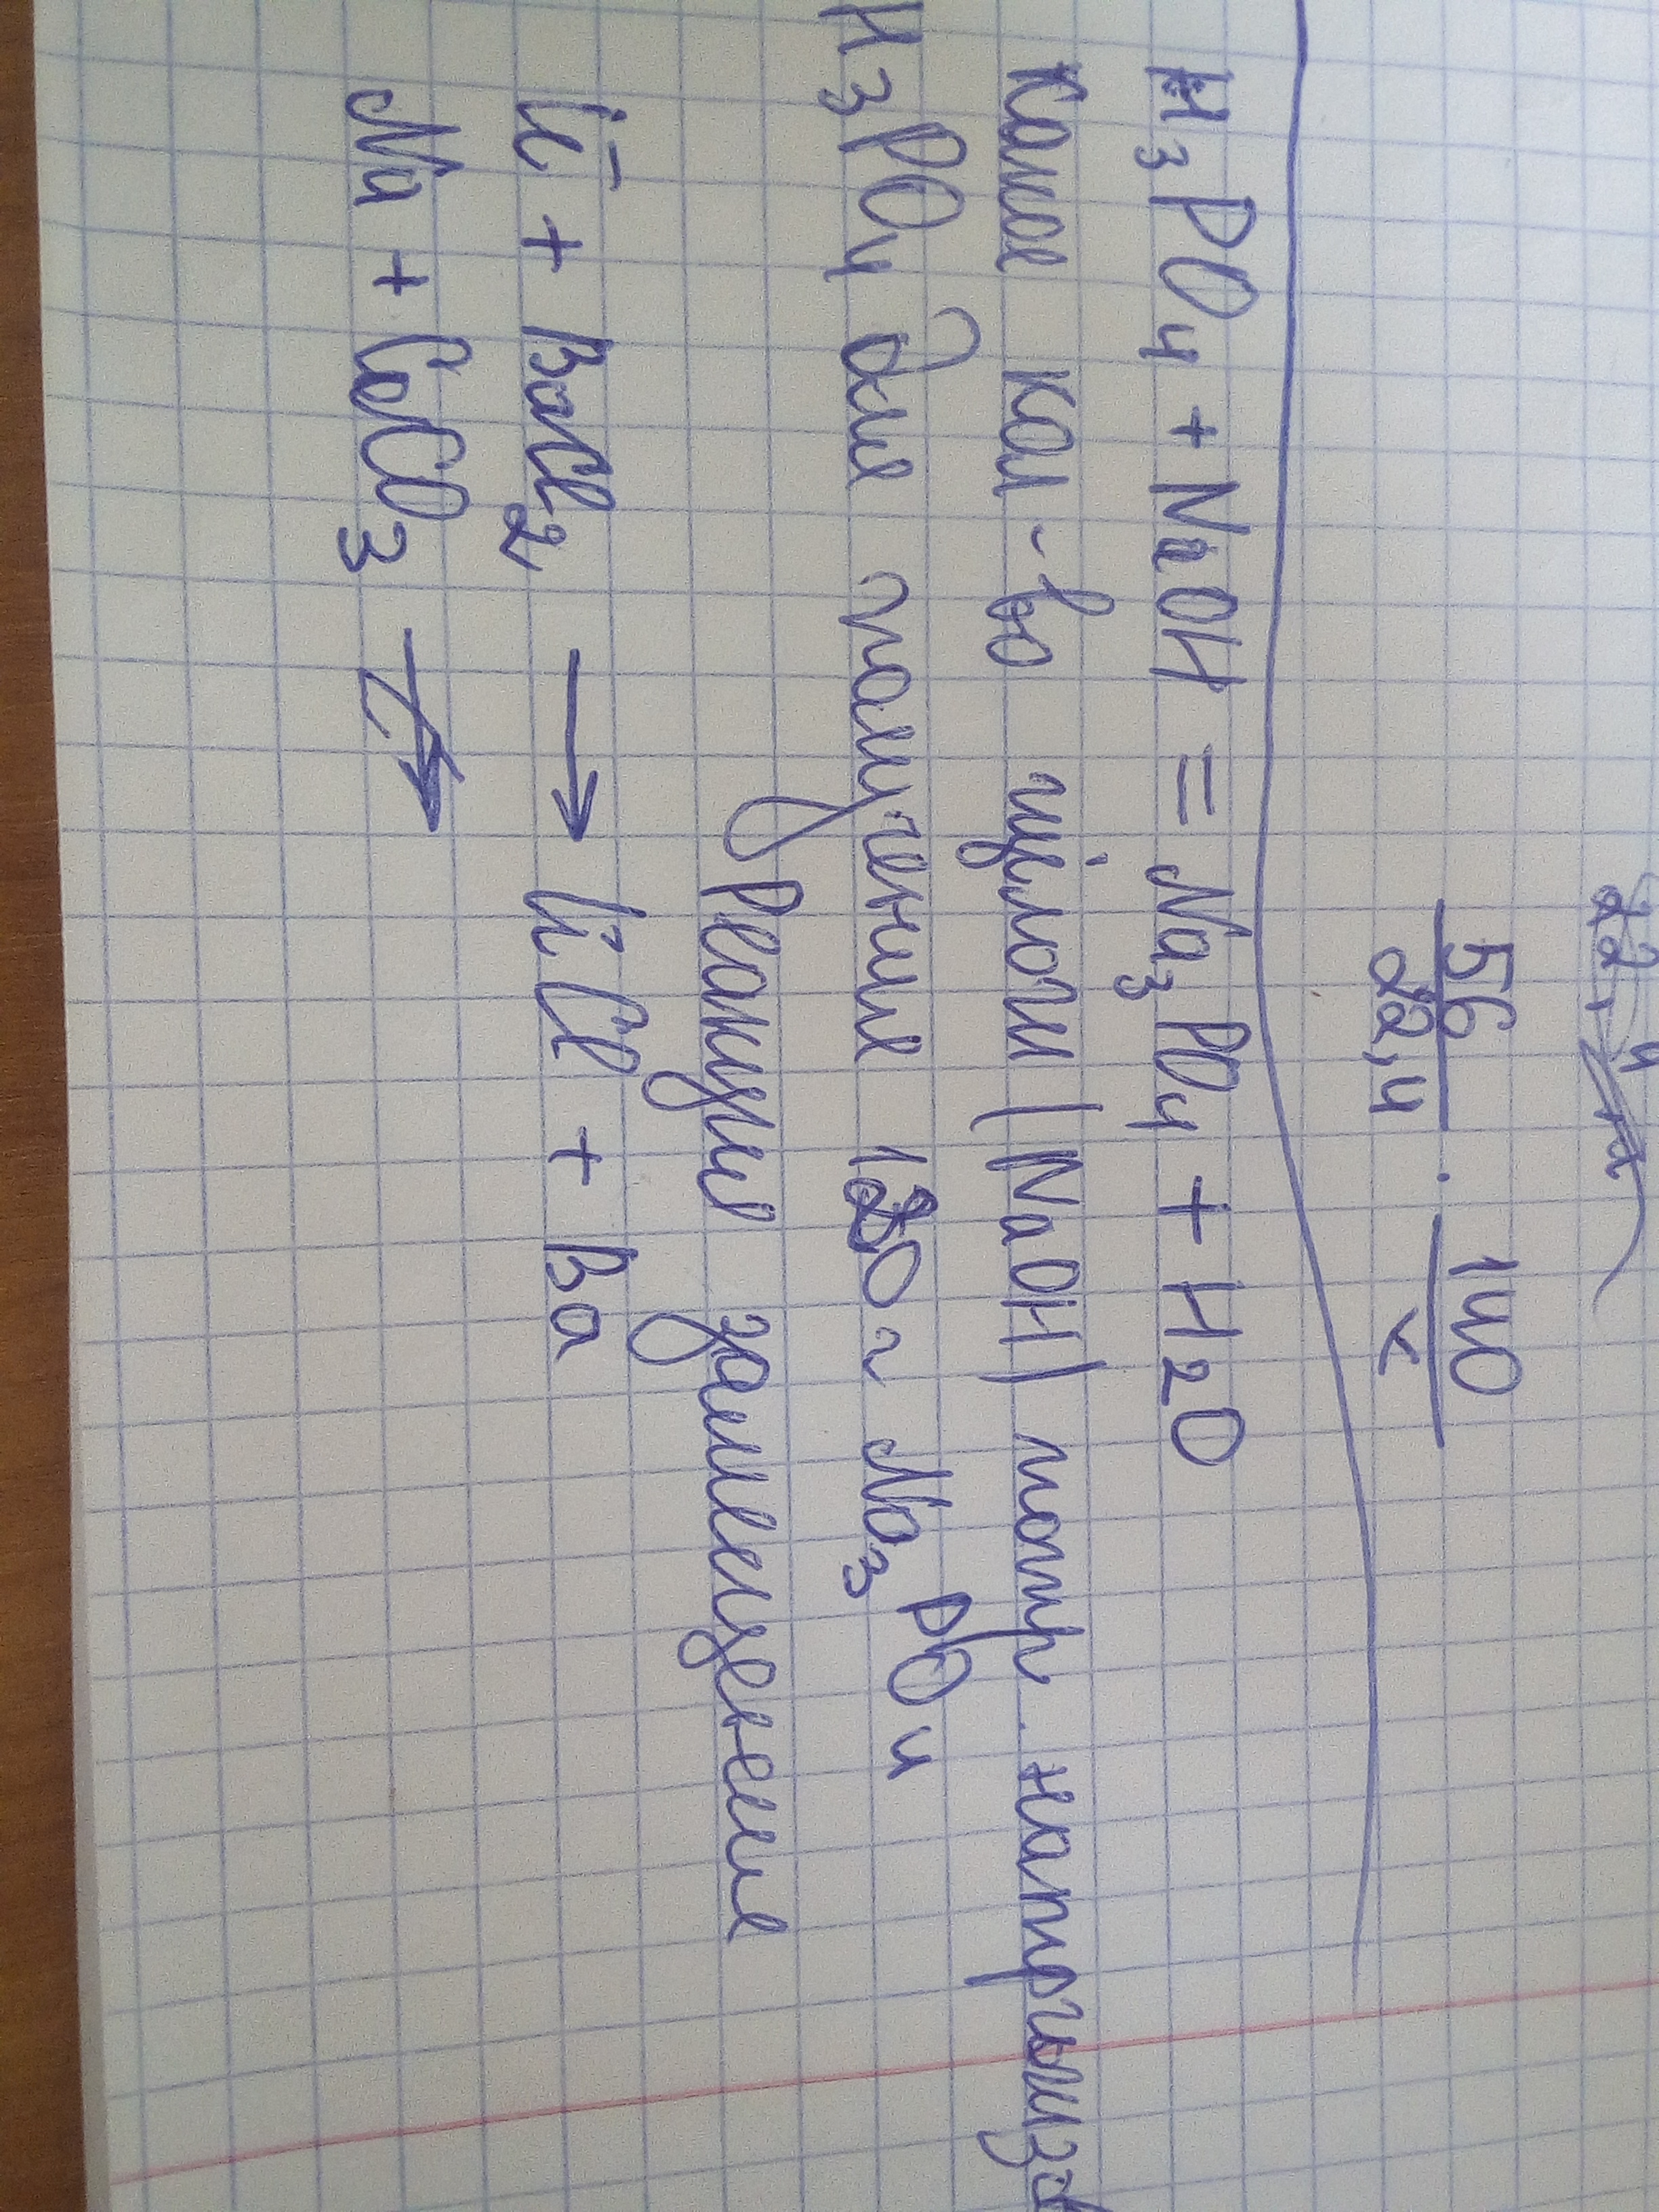 22,4
56 · 140
22,4 x
H₃PO₄ + NaOH = Na₃PO₄ + H₂O
Какое кол-во щёлочи (NaOH) потр. на произв
H₃PO₄ для получения 120 г Na₃PO₄
Реакция замещения
Li + BaCl₂ → LiCl + Ba
Na + CaCO₃